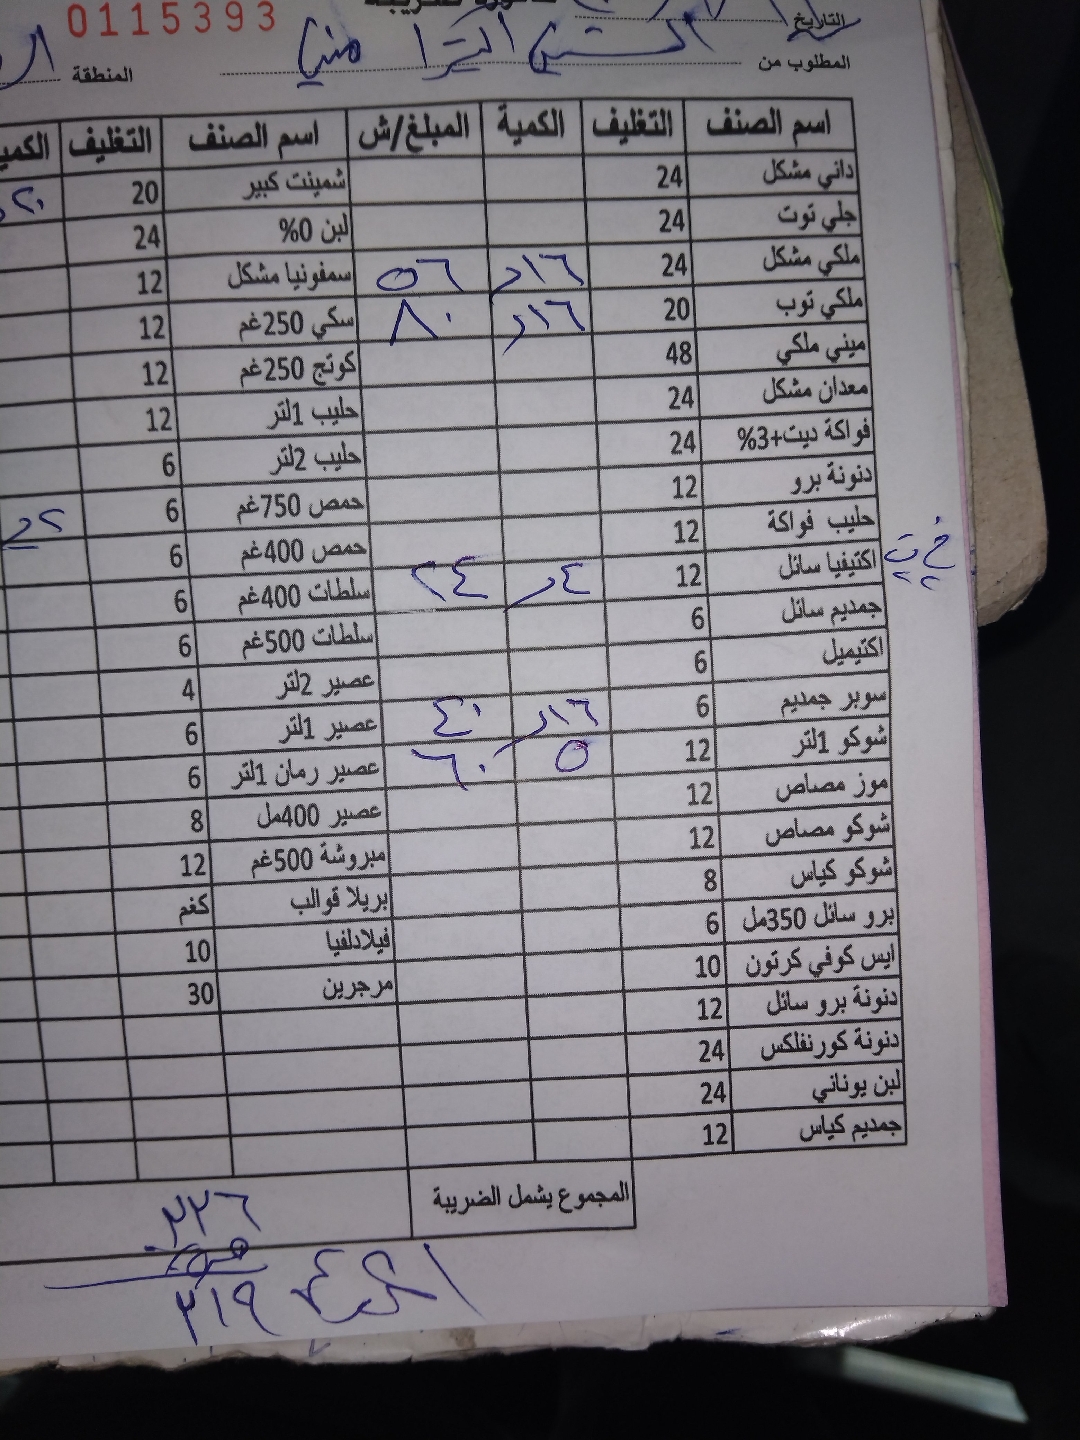 0115393
التاريخ
المطلوب من المنطقة
اسم الصنف التغليف الكمية المبلغ/ش اسم الصنف التغليف
داني مشكل 24 شمينت كبير 20
جلي توت 24 لبن 0% 24
ملكي مشكل 24 ١٦ر ٥٦ سمفونيا مشكل 12
ملكي توب 20 ١٦ر ٨٠ سكي 250غم 12
ميني ملكي 48 كوتج 250غم 12
معدان مشكل 24 حليب 1لتر 12
فواكة ديت+3% 24 حليب 2لتر 6
دنونة برو 12 حمص 750غم 6
حليب فواكة 12 حمص 400غم 6
اكتيفيا سائل 12 ٤ر ٢٤ سلطات 400غم 6
جمديم سائل 6 سلطات 500غم 6
اكتيميل 6 عصير 2لتر 4
سوبر جمديم 6 ١٦ر ٤٠ عصير 1لتر 6
شوكو 1لتر 12 ٥ ٦٠ عصير رمان 1لتر 6
موز مصاص 12 عصير 400مل 8
شوكو مصاص 12 مبروشة 500غم 12
شوكو كياس 8 بريلا قوالب كغم
برو سائل 350مل 6 فيلادلفيا 10
ايس كوفي كرتون 10 مرجرين 30
دنونة برو سائل 12
دنونة كورنفلكس 24
لبن يوناني 24
جمديم كياس 12
المجموع يشمل الضريبة
٣٢٦
٣١٩